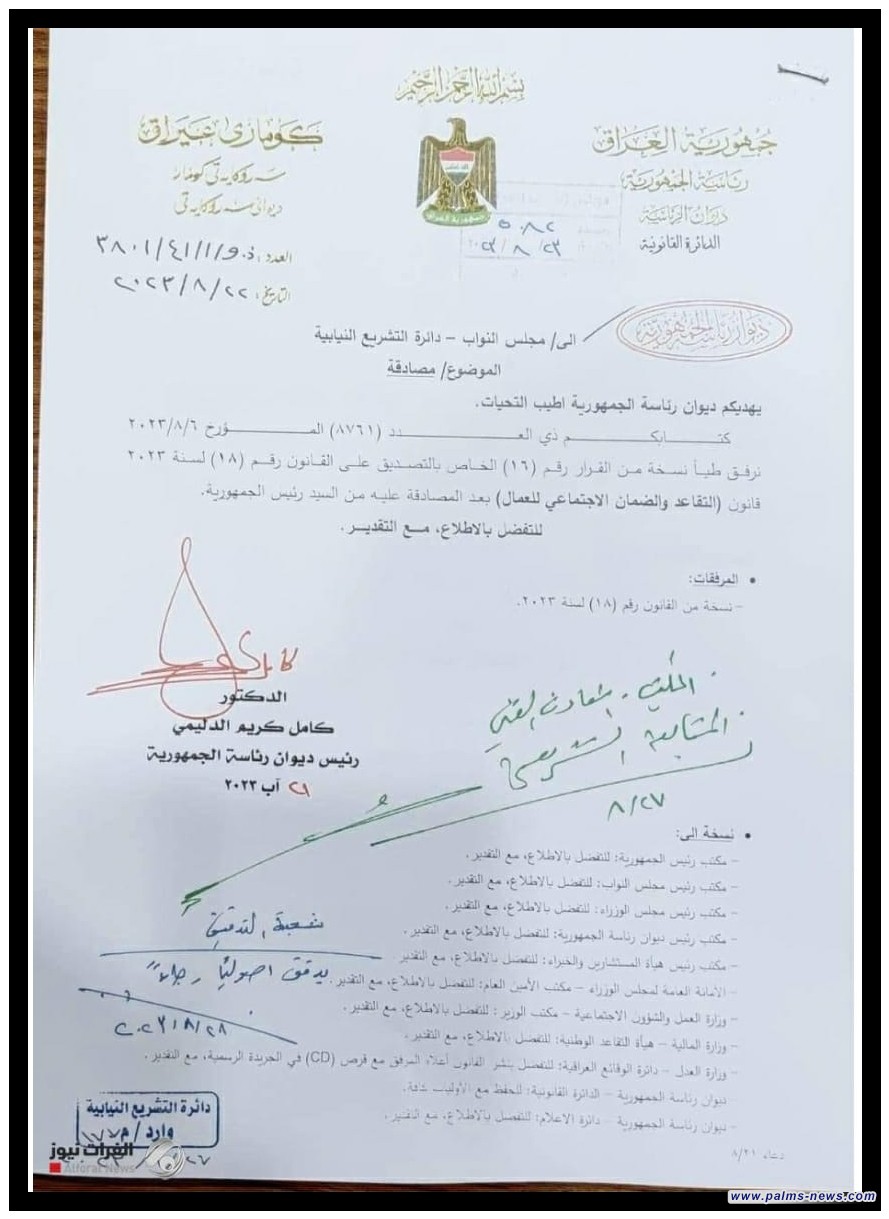 بسم الله الرحمن الرحيم
جمهورية العراق
رئاسة الجمهورية
ديوان الرئاسة
الدائرة القانونية
كۆماری عێراق
سەرۆکایەتی کۆمار
دیوانی سەرۆکایەتی
جمهورية العراق
٥٠٨٢
٢٠٢٣/٨/٢٣
العدد: ذ.و/١/٤١/٣٨٠١
التاريخ: ٢٠٢٣/٨/٢٢
ديوان رئاسة الجمهورية
الى/ مجلس النواب – دائرة التشريع النيابية
الموضوع/ مصادقة
يهديكم ديوان رئاسة الجمهورية اطيب التحيات.
كتـــابكـــم ذي العـــدد (٨٧٦١) المـــؤرخ ٢٠٢٣/٨/٦
نرفق طياً نسخة من القرار رقم (١٦) الخاص بالتصديق على القانون رقم (١٨) لسنة ٢٠٢٣
قانون (التقاعد والضمان الاجتماعي للعمال) بعد المصادقة عليه من السيد رئيس الجمهورية.
للتفضل بالاطلاع، مـع التقديـر.
• المرفقات:
– نسخة من القانون رقم (١٨) لسنة ٢٠٢٣.
الدكتور
كامل كريم الدليمي
رئيس ديوان رئاسة الجمهورية
٢١ آب ٢٠٢٣
٨/٢٧
• نسخة الى:
– مكتب رئيس الجمهورية: للتفضل بالاطلاع، مع التقدير.
– مكتب رئيس مجلس النواب: للتفضل بالاطلاع، مع التقدير.
– مكتب رئيس مجلس الوزراء: للتفضل بالاطلاع، مع التقدير.
– مكتب رئيس ديوان رئاسة الجمهورية: للتفضل بالاطلاع، مع التقدير.
– مكتب رئيس هيأة المستشارين والخبراء: للتفضل بالاطلاع، مع التقدير.
– الأمانة العامة لمجلس الوزراء – مكتب الأمين العام: للتفضل بالاطلاع، مع التقدير.
– وزارة العمل والشؤون الاجتماعية – مكتب الوزير: للتفضل بالاطلاع، مع التقدير.
– وزارة المالية – هيأة التقاعد الوطنية: للتفضل بالاطلاع، مع التقدير.
– وزارة العدل – دائرة الوقائع العراقية: للتفضل بنشر القانون أعلاه المرفق مع قرص (CD) في الجريدة الرسمية، مع التقدير.
– ديوان رئاسة الجمهورية – الدائرة القانونية: للحفظ مع الأوليات كافة.
– ديوان رئاسة الجمهورية – دائرة الاعلام: للتفضل بالاطلاع، مع التقدير.
شعبة التدقيق
يدقق اصوليا رجاءً
٢٠٢٣/٨/٢٨
دائرة التشريع النيابية
وارد/م
دعاء ٨/٢١
الفرات نيوز
Alforat News
www.palms-news.com